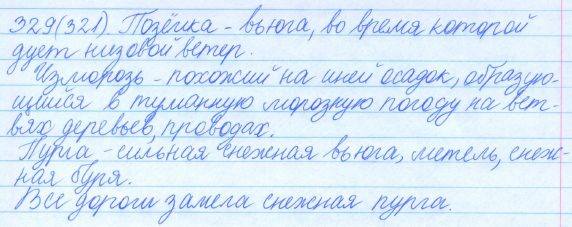 329(321). Позёмка - вьюга, во время которой
дует низовой ветер.
Изморозь - похожий на иней осадок, образую-
щийся в туманную морозную погоду на вет-
вях деревьев, проводах.
Пурга - сильная снежная вьюга, метель, снеж-
ная буря.
Все дороги замела снежная пурга.